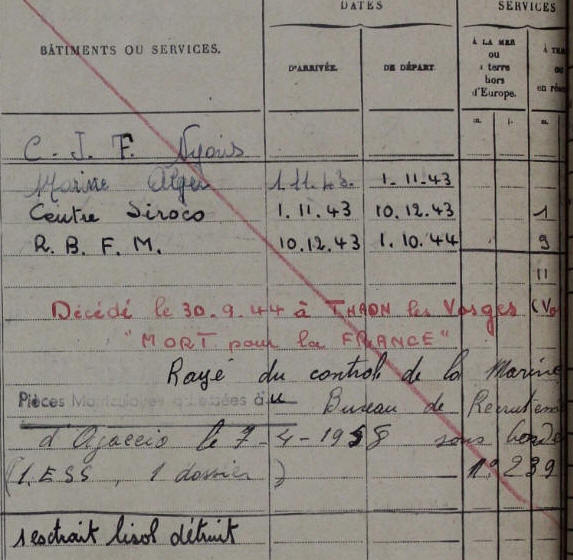 DATES
SERVICES
BÂTIMENTS OU SERVICES.
D'ARRIVÉE.
DE DÉPART.
À LA MER
ou
à terre
hors
d'Europe.
À TE
ou
en rés
m. j. m.
C. J. F. Nyons
Marine Alger 1.11.43. 1.11.43
Centre Siroco 1.11.43 10.12.43 1
R.B.F.M. 10.12.43 1.10.44 9
11
Décédé le 30.9.44 à THAON les Vosges (Vo
"MORT pour la FRANCE"
Rayé du controle de la Marine
Pièces Matriculaires adressées au Bureau de Recrutement
d'Ajaccio le 7-4-1958 sous borde
(1. ESS, 1 dossier) n° 239
1 extrait lisol détruit